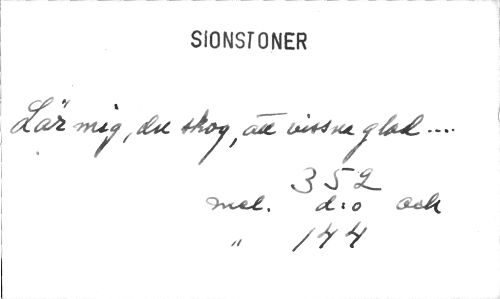 SIONSTONER
Lär mig, du skog, att vissna glad ....
352
mel. d:o och
" 144